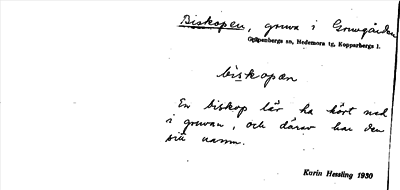 Biskopen, gruva i Gruvgården
Garpenbergs sn, Hedemora tg, Kopparbergs l.
biskopən
En biskop lär ha kört ned
i gruvan, och därav har den
sitt namn.
Karin Hessling 1930